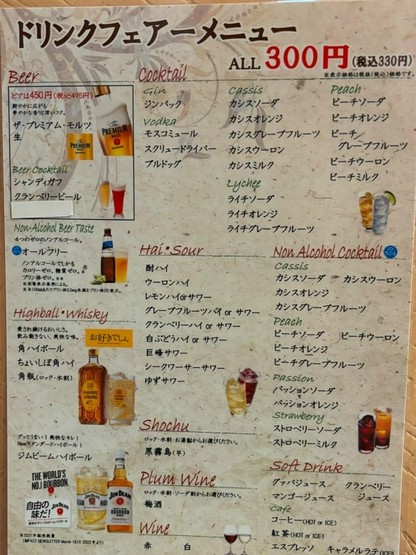 ドリンクフェアーメニュー
ALL 300円(税込330円)
※表示価格は税抜(税込)価格です。
Beer
ビアは450円(税込495円)
ザ・プレミアム・モルツ
生
Beer Cocktail
シャンディガフ
クランベリービール
Non-Alcohol Beer Taste
4つのゼロのノンアルコール。
オールフリー
ノンアルコールでしかも
カロリーゼロ、糖質ゼロ。
Highball・Whisky
お好きでしょ
角ハイボール
ちょいしぼ角ハイ
角瓶(ロック・水割)
ジムビームハイボール
THE WORLD'S
NO.1 BOURBON.
自由の
味だ!
JIM BEAM
Cocktail
Gin
ジンバック
Vodka
モスコミュール
スクリュードライバー
ブルドッグ
Cassis
カシスソーダ
カシスオレンジ
カシスグレープフルーツ
カシスウーロン
カシスミルク
Lychee
ライチソーダ
ライチオレンジ
ライチグレープフルーツ
Peach
ピーチソーダ
ピーチオレンジ
ピーチ
グレープフルーツ
ピーチウーロン
ピーチミルク
Hai・Sour
酎ハイ
ウーロンハイ
レモンハイorサワー
グレープフルーツハイ or サワー
クランベリーハイ or サワー
白ぶどうハイ or サワー
巨峰サワー
シークワーサーサワー
ゆずサワー
Shochu
ロック・水割・お湯割からお選びください。
黒霧島(芋)
Plum Wine
ロック・水割・ソーダ割からお選びください。
梅酒
Wine
赤 白
Non Alcohol Cocktail
Cassis
カシスソーダ カシスウーロン
カシスオレンジ
カシスグレープフルーツ
Peach
ピーチソーダ ピーチウーロン
ピーチオレンジ
ピーチグレープフルーツ
Passion
パッションソーダ
パッションオレンジ
Strawberry
ストロベリーソーダ
ストロベリーミルク
Soft Drink
グァバジュース クランベリー
マンゴージュース ジュース
Cafe
コーヒー(HOT or ICE)
紅茶(HOT or ICE)
エスプレッソ キャラメルラテ(ICE)